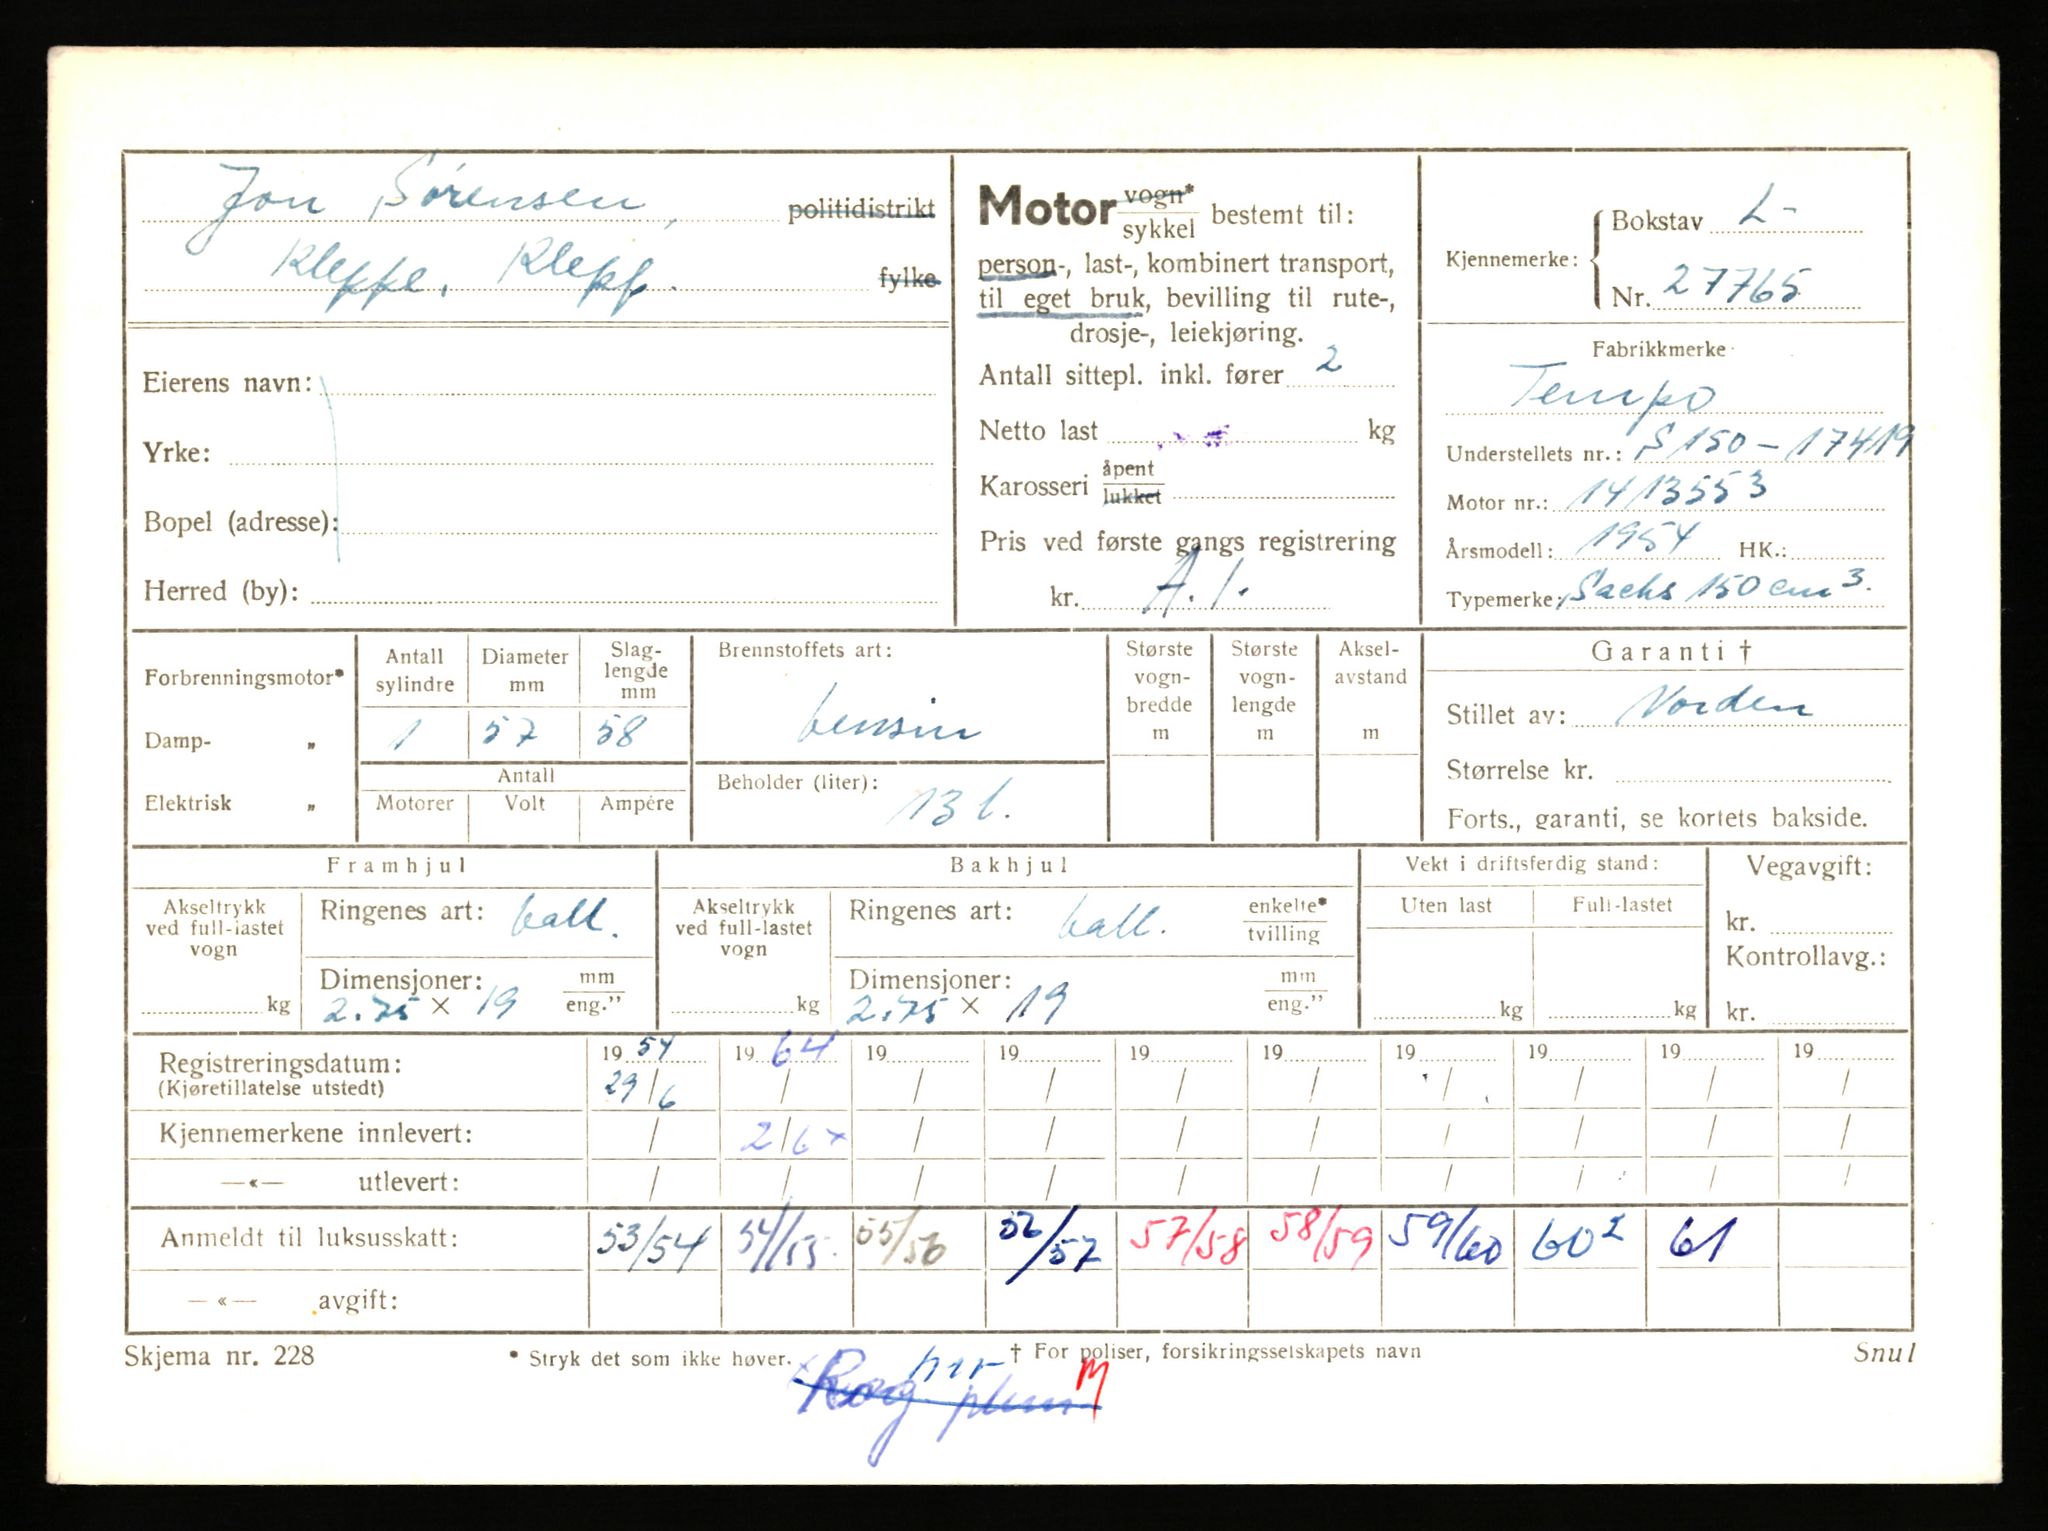 Jon Sørensen, politidistrikt
Kleppe, Klepp. fylke
Eierens navn:
Yrke:
Bopel (adresse):
Herred (by):
Motor vogn* / sykkel bestemt til:
person-, last-, kombinert transport,
til eget bruk, bevilling til rute-,
drosje-, leiekjøring.
Antall sittepl. inkl. fører 2
Netto last kg
Karosseri åpent / lukket
Pris ved første gangs registrering
kr. A. /.
Kjennemerke: Bokstav L-
Nr. 27765
Fabrikkmerke
Tempo
Understellets nr.: S 150-17419
Motor nr.: 1413553
Årsmodell: 1954 HK.:
Typemerke: Sachs 150 cm³.
Forbrenningsmotor*
Damp- „
Elektrisk „
Antall sylindre Diameter mm Slag-lengde mm
1 57 58
Antall
Motorer Volt Ampére
Brennstoffets art:
bensin
Beholder (liter):
13 l.
Største vogn-bredde m
Største vogn-lengde m
Aksel-avstand m
Garanti †
Stillet av: Norden
Størrelse kr.
Forts., garanti, se kortets bakside.
Framhjul
Akseltrykk ved full-lastet vogn
kg
Ringenes art: ball.
Dimensjoner: mm / eng."
2.75 × 19
Bakhjul
Akseltrykk ved full-lastet vogn
kg
Ringenes art: ball. enkelte* / tvilling
Dimensjoner: mm / eng."
2.75 × 19
Vekt i driftsferdig stand:
Uten last Full-lastet
kg kg
Vegavgift:
kr.
Kontrollavg.:
kr.
Registreringsdatum: 19 54 19 64 19 19 19 19 19 19 19 19
(Kjøretillatelse utstedt) 29/6 / / / / / / / / /
Kjennemerkene innlevert: / 2/6 × / / / / / / / /
—«— utlevert: / / / / / / / / / /
Anmeldt til luksusskatt: 53/54 54/55. 55/56 56/57 57/58 58/59 59/60 60² 61
—«— avgift:
Skjema nr. 228 * Stryk det som ikke høver. † For poliser, forsikringsselskapets navn Snul
M